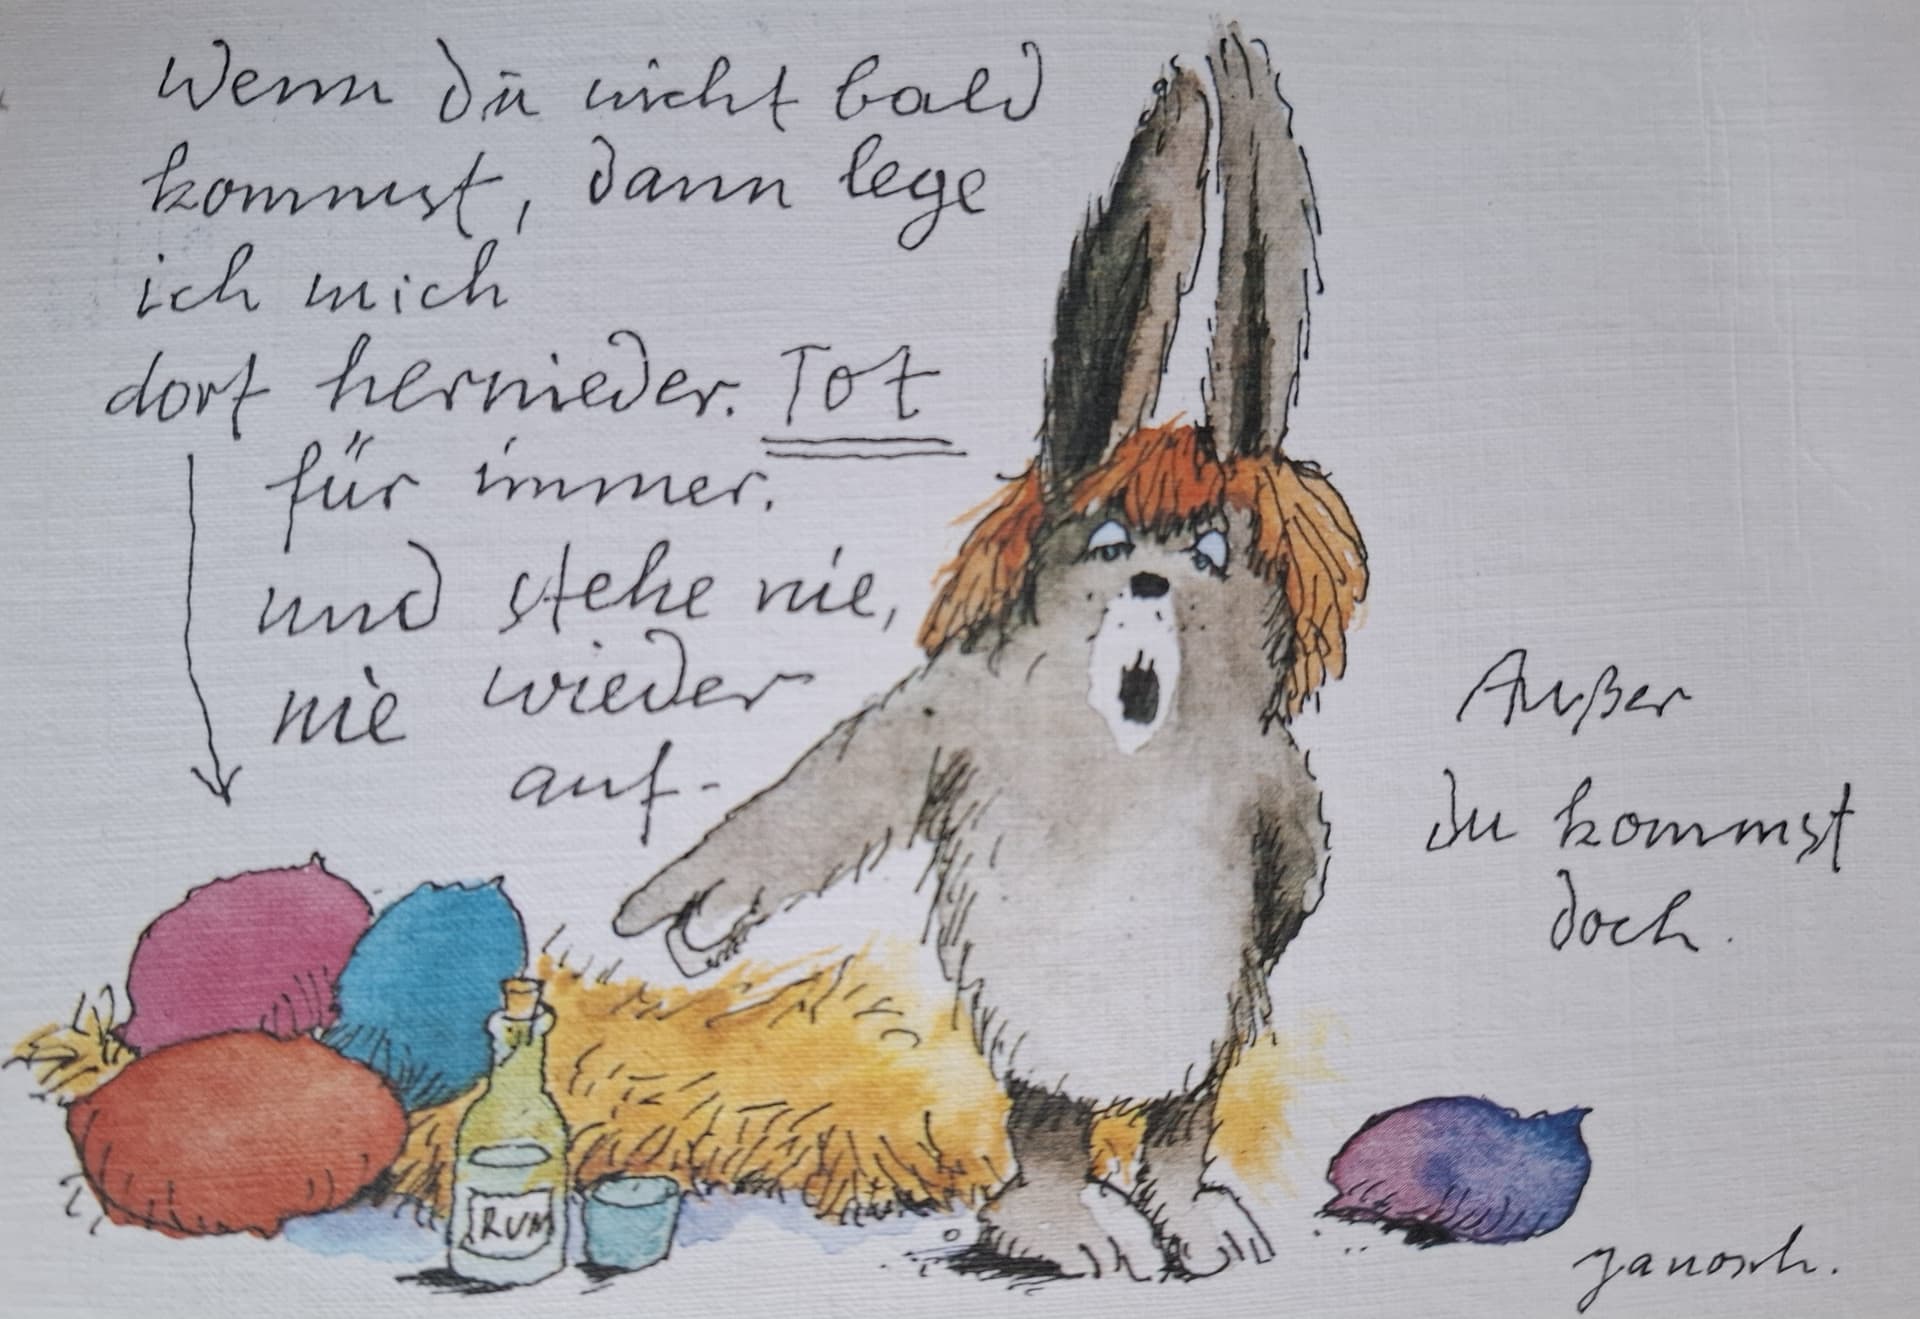 Wenn du nicht bald
kommst, dann lege
ich mich
dort hernieder. Tot
für immer.
und stehe nie,
nie wieder
auf-
Außer
du kommst
doch.
RUM
Janosch.